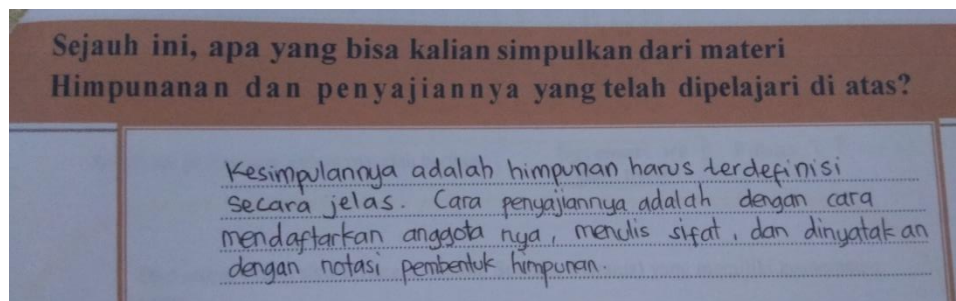 Sejauh ini, apa yang bisa kalian simpulkan dari materi
Himpunanan dan penyajiannya yang telah dipelajari di atas?
Kesimpulannya adalah himpunan harus terdefinisi
secara jelas. Cara penyajiannya adalah dengan cara
mendaftarkan anggota nya, menulis sifat, dan dinyatakan
dengan notasi pembentuk himpunan.